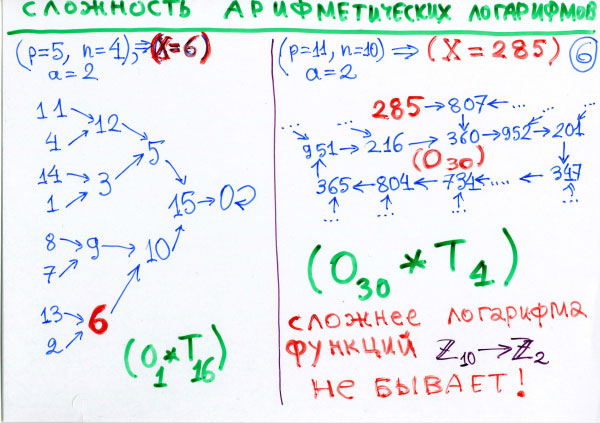 СЛОЖНОСТЬ АРИФМЕТИЧЕСКИХ ЛОГАРИФМОВ
(p=5, n=4), ⇒ (X=6)
a=2
11
12
4
5
14
3
1
15 → 0
8
9 → 10
7
13
6
2
(O₁*T₁₆)
(p=11, n=10) ⇒ (X=285) 6
a=2
285 → 807 ← ...
... ... ... ...
951 → 216 → 360 → 952 → 201
(O₃₀)
365 ← 804 ← 734 ← .... ← 347
... ... ... ...
(O₃₀*T₄)
СЛОЖНЕЕ ЛОГАРИФМА
ФУНКЦИЙ Z₁₀ → Z₂
НЕ БЫВАЕТ!